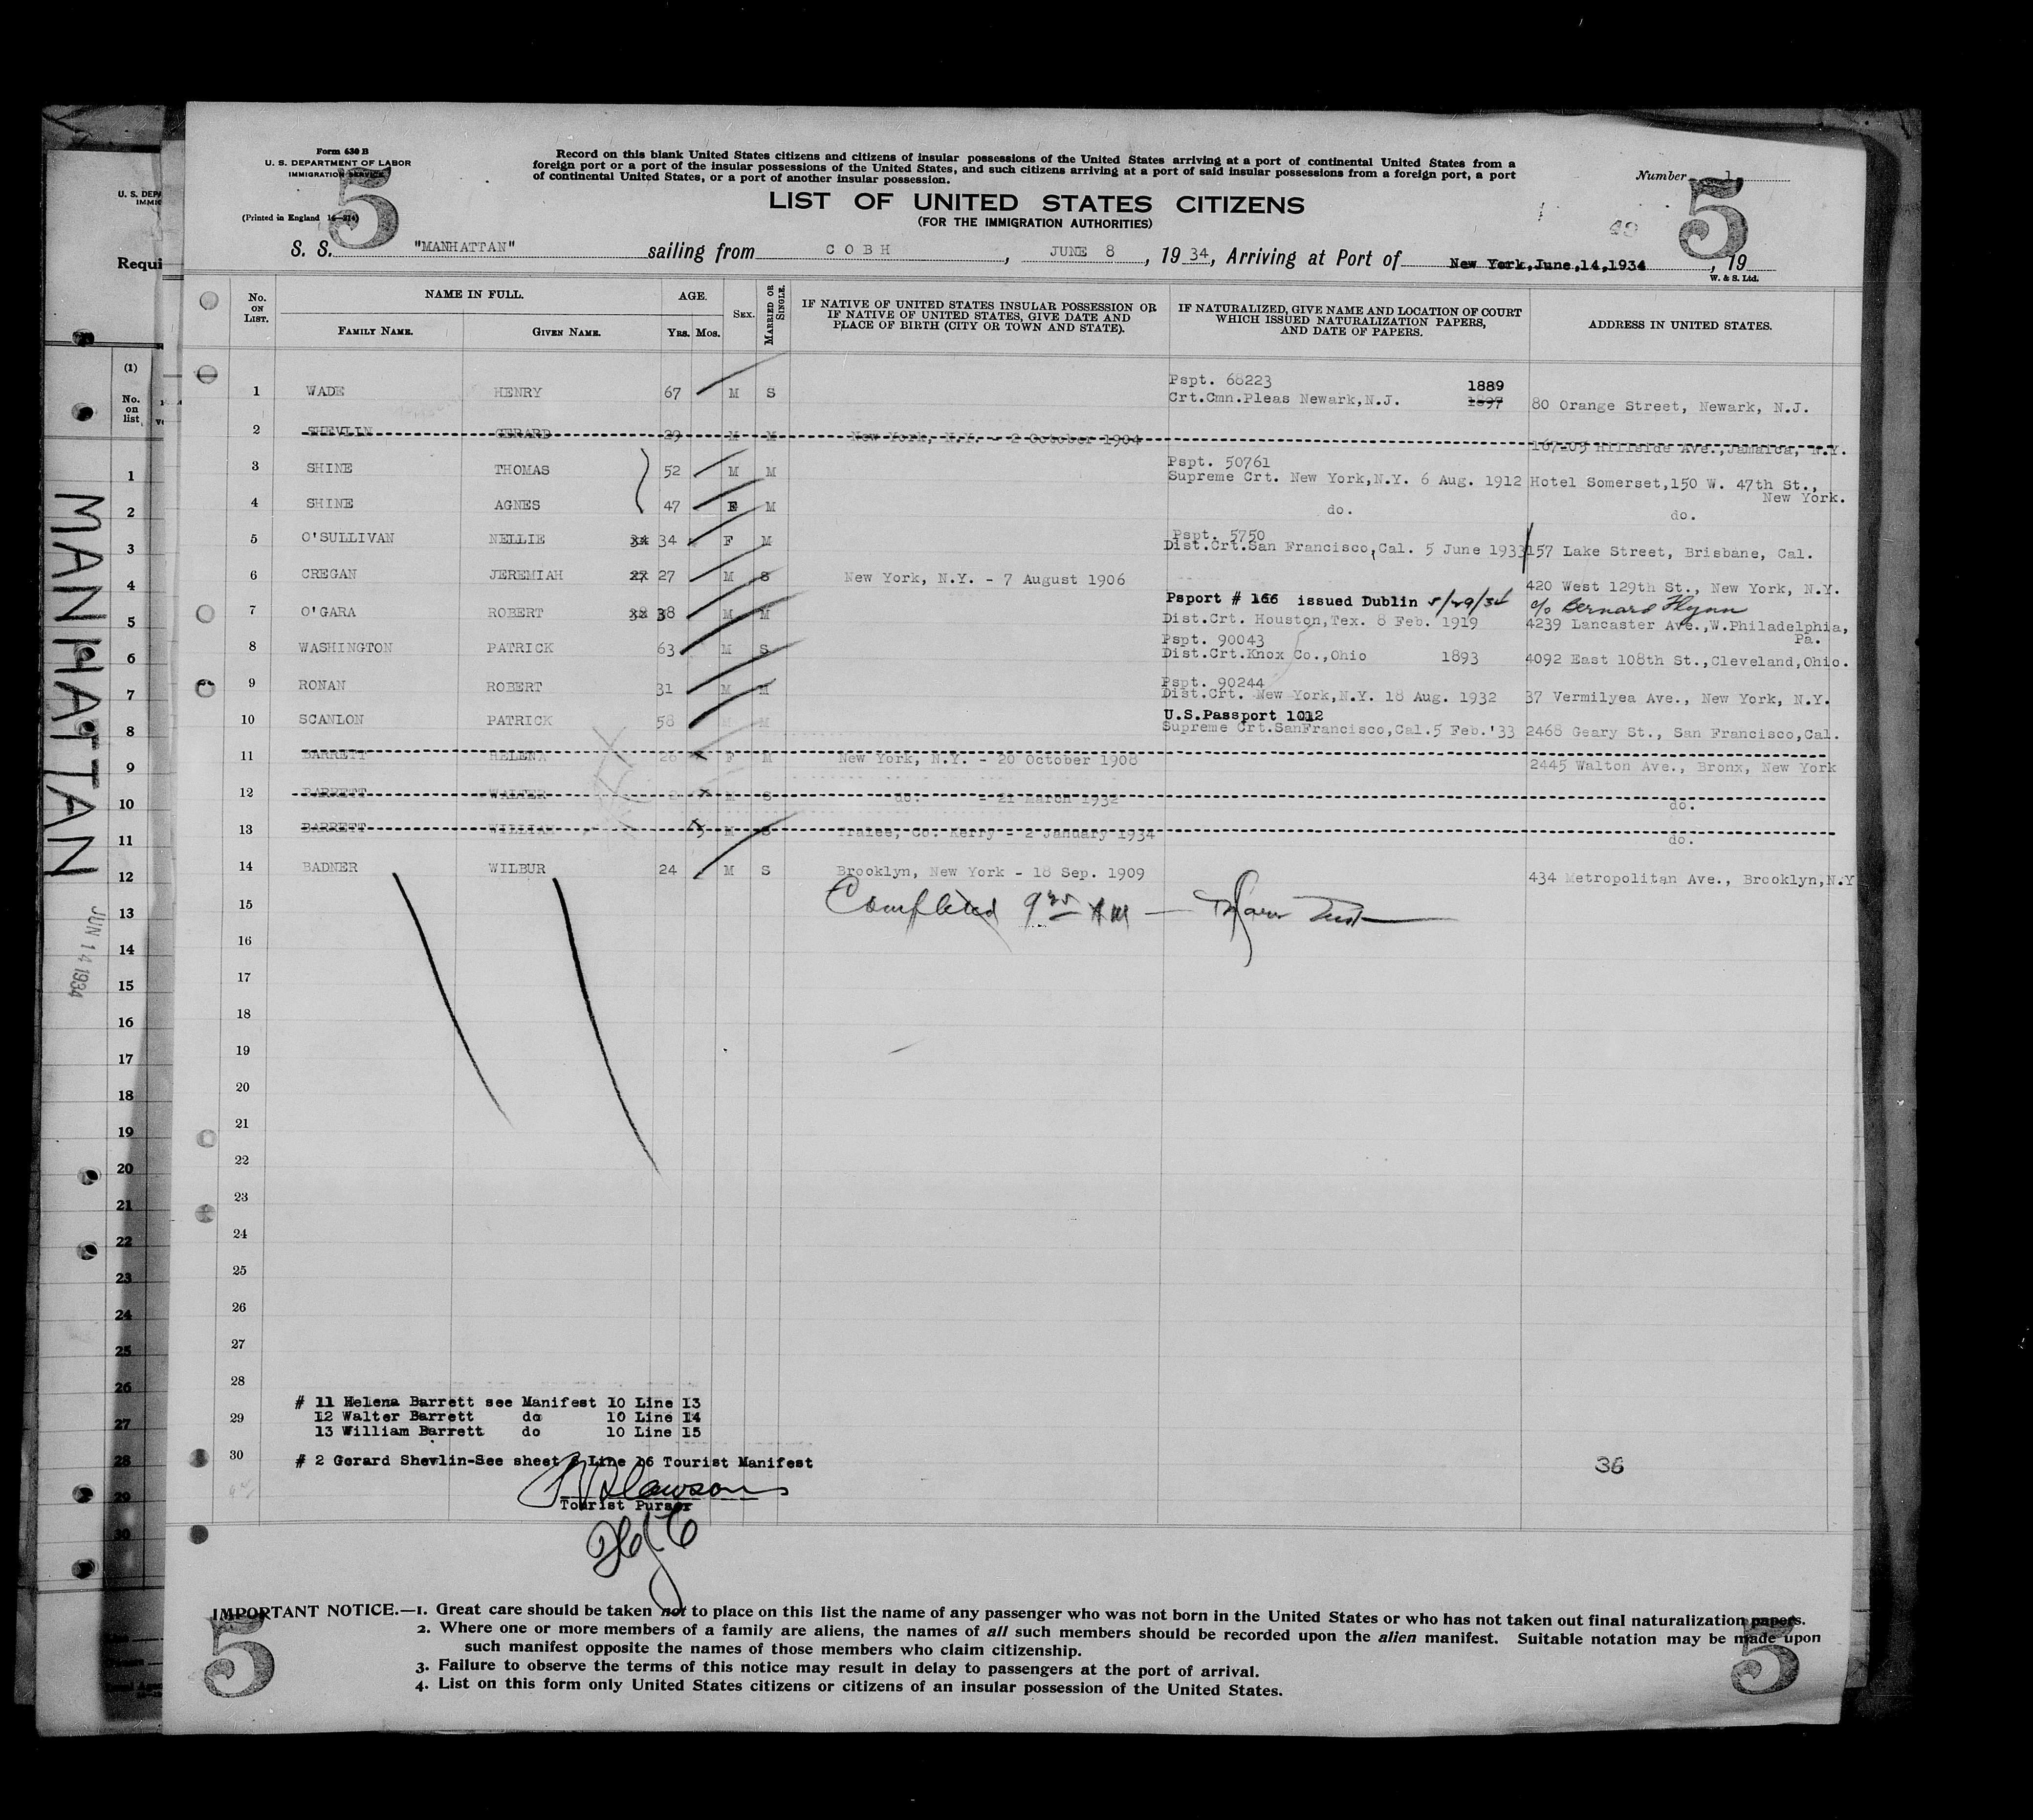 Form 630 B
U. S. DEPARTMENT OF LABOR
IMMIGRATION SERVICE
(Printed in England 16—214)
5
Record on this blank United States citizens and citizens of insular possessions of the United States arriving at a port of continental United States from a
foreign port or a port of the insular possessions of the United States, and such citizens arriving at a port of said insular possessions from a foreign port, a port
of continental United States, or a port of another insular possession.
Number 1
5
49
LIST OF UNITED STATES CITIZENS
(FOR THE IMMIGRATION AUTHORITIES)
S. S. "MANHATTAN" sailing from COBH, JUNE 8, 1934, Arriving at Port of New York,June,14,1934, 19
W. & S. Ltd.
No. ON LIST. NAME IN FULL. FAMILY NAME. GIVEN NAME. AGE. YRS. MOS. SEX. MARRIED OR SINGLE. IF NATIVE OF UNITED STATES INSULAR POSSESSION OR IF NATIVE OF UNITED STATES, GIVE DATE AND PLACE OF BIRTH (CITY OR TOWN AND STATE). IF NATURALIZED, GIVE NAME AND LOCATION OF COURT WHICH ISSUED NATURALIZATION PAPERS, AND DATE OF PAPERS. ADDRESS IN UNITED STATES.
Pspt. 68223 1889
1 WADE HENRY 67 M S Crt.Cmn.Pleas Newark,N.J. 1897 80 Orange Street, Newark, N.J.
2 SHEVLIN GERARD 29 M M New York, N.Y. - 2 October 1904 167-05 Hillside Ave.,Jamaica, N.Y.
Pspt. 50761
3 SHINE THOMAS 52 M M Supreme Crt. New York,N.Y. 6 Aug. 1912 Hotel Somerset,150 W. 47th St.,
New York.
4 SHINE AGNES 47 F M do. do.
Pspt. 5750
5 O'SULLIVAN NELLIE 34 34 F M Dist.Crt.San Francisco,Cal. 5 June 1933 157 Lake Street, Brisbane, Cal.
6 CREGAN JEREMIAH 27 27 M S New York, N.Y. - 7 August 1906 420 West 129th St., New York, N.Y.
Psport # 166 issued Dublin 5/29/34 c/o Bernard Flynn
7 O'GARA ROBERT 38 38 M M Dist.Crt. Houston,Tex. 8 Feb. 1919 4239 Lancaster Ave.,W.Philadelphia,
Pa.
Pspt. 90043
8 WASHINGTON PATRICK 63 M S Dist.Crt.Knox Co.,Ohio 1893 4092 East 108th St.,Cleveland,Ohio.
Pspt. 90244
9 RONAN ROBERT 31 M M Dist.Crt. New York,N.Y. 18 Aug. 1932 37 Vermilyea Ave., New York, N.Y.
U.S.Passport 1012
10 SCANLON PATRICK 58 M M Supreme Crt.SanFrancisco,Cal.5 Feb.'33 2468 Geary St., San Francisco,Cal.
11 BARRETT HELENA 26 F M New York, N.Y. - 20 October 1908 2445 Walton Ave., Bronx, New York
12 BARRETT WALTER 2 M S do. - 21 March 1932 do.
13 BARRETT WILLIAM 5 M S Tralee, Co. Kerry - 2 January 1934 do.
14 BADNER WILBUR 24 M S Brooklyn, New York - 18 Sep. 1909 434 Metropolitan Ave., Brooklyn,N.Y
15 Completed AM
16
17
18
19
20
21
22
23
24
25
26
27
28
# 11 Helena Barrett see Manifest 10 Line 13
29 12 Walter Barrett do 10 Line 14
13 William Barrett do 10 Line 15
30 # 2 Gerard Shevlin-See sheet Line 16 Tourist Manifest
36
Tourist Purser
IMPORTANT NOTICE.—1. Great care should be taken not to place on this list the name of any passenger who was not born in the United States or who has not taken out final naturalization papers.
2. Where one or more members of a family are aliens, the names of all such members should be recorded upon the alien manifest. Suitable notation may be made upon
such manifest opposite the names of those members who claim citizenship.
3. Failure to observe the terms of this notice may result in delay to passengers at the port of arrival.
4. List on this form only United States citizens or citizens of an insular possession of the United States.
5
5
U. S. DEPA
IMMIG
Requi
(1)
No. on list
1
2
3
4
5
6
7
8
9
10
11
12
13
14
15
16
17
18
19
20
21
22
23
24
25
26
27
28
29
30
MANHATTAN
JUN 14 1934